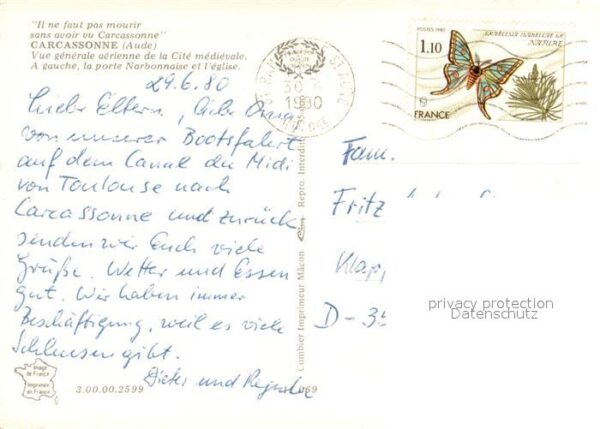 "Il ne faut pas mourir
sans avoir vu Carcassonne"
CARCASSONNE (Aude)
Vue générale aérienne de la Cité médiévale.
A gauche, la porte Narbonnaise et l'église.
29.6.80
Liebe Eltern, liebe Oma,
von unserer Bootsfahrt
auf dem Canal du Midi
von Toulouse nach
Carcassonne und zurück
senden wir Euch viele
Grüße. Wetter und Essen
gut. Wir haben immer
Beschäftigung, weil es viele
Schleusen gibt.
Dieter und
Image
de France
Imprimée
en France
3.00.00.2599
Combier Imprimeur Mâcon
Cim
Repro. Interdite
30
1980
POSTES 1980
GRAELLSIA ISABELLAE DE
NATURE
1,10
FRANCE
Fam.
Fritz
Klap,
D-35
privacy protection
Datenschutz